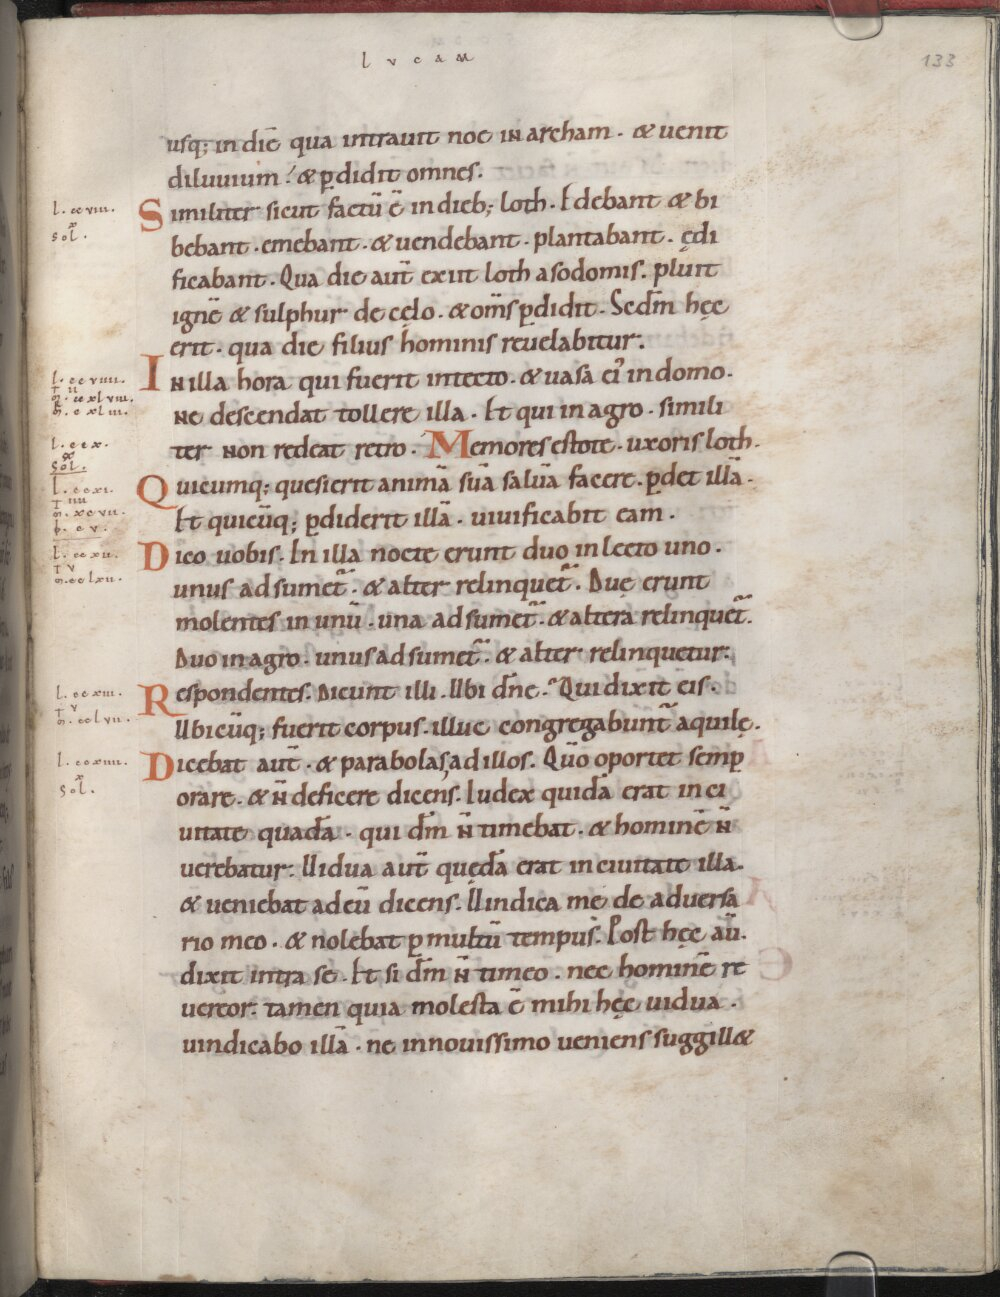 lvcam
133
usq; in diē qua intrauit noe in archam · & uenit
diluuium · & p̄didit omnes ·
l. ccviii.
x
Sol.
Similiter sicut factū ē in dieb; loth · Edebant & bi
bebant · emebant · & uendebant · plantabant · ędi
ficabant · Qua die aut̄ exiit loth a sodomis · pluit
ignē & sulphur de cęlo · & om̄s p̄didit · Scdm̄ hęc
erit · qua die filius hominis reuelabitur ·
l. ccviiii.
In illa hora qui fuerit intecto · & uasa ei' in domo ·
ne descendat tollere illa · Et qui in agro · simili
l. ccx.
x
Sol.
ter non redeat retro · Memores estote · uxoris loth ·
l. ccxi.
Quicumq; quesierit animā suā saluā facere · p̄det illā ·
Et quicūq; p̄diderit illā · uiuificabit eam ·
l. ccxii.
Dico uobis · In illa nocte erunt duo in lecto uno ·
unus adsumet̄ · & alter relinquet̄ · Duę erunt
molentes in unū · una adsumet̄ · & altera relinquet̄ ·
Duo in agro · unus adsumet̄ · & alter relinquetur ·
l. ccxiii.
Respondentes · dicunt illi · Ubi dn̄e · Qui dixit eis ·
Ubicūq; fuerit corpus · illuc congregabunt̄ aquilę ·
l. ccxiiii.
x
Sol.
Dicebat aut̄ · & parabolas, ad illos · Qūo oportet semp̄
orare · & n̄ deficere dicens · Iudex quidā erat in ci
uitate quadā · qui dm̄ n̄ timebat · & hominē n̄
uerebatur · Uidua aut̄ quedā erat in ciuitate illa ·
& ueniebat ad eū dicens · Uindica me de aduersa
rio meo · & nolebat p̄ multū tempus · Post hęc aū ·
dixit intra se · Et si dm̄ n̄ timeo · nec hominē re
uereor · tamen quia molesta ē mihi hęc uidua ·
uindicabo illā · ne in nouissimo ueniens suggill&